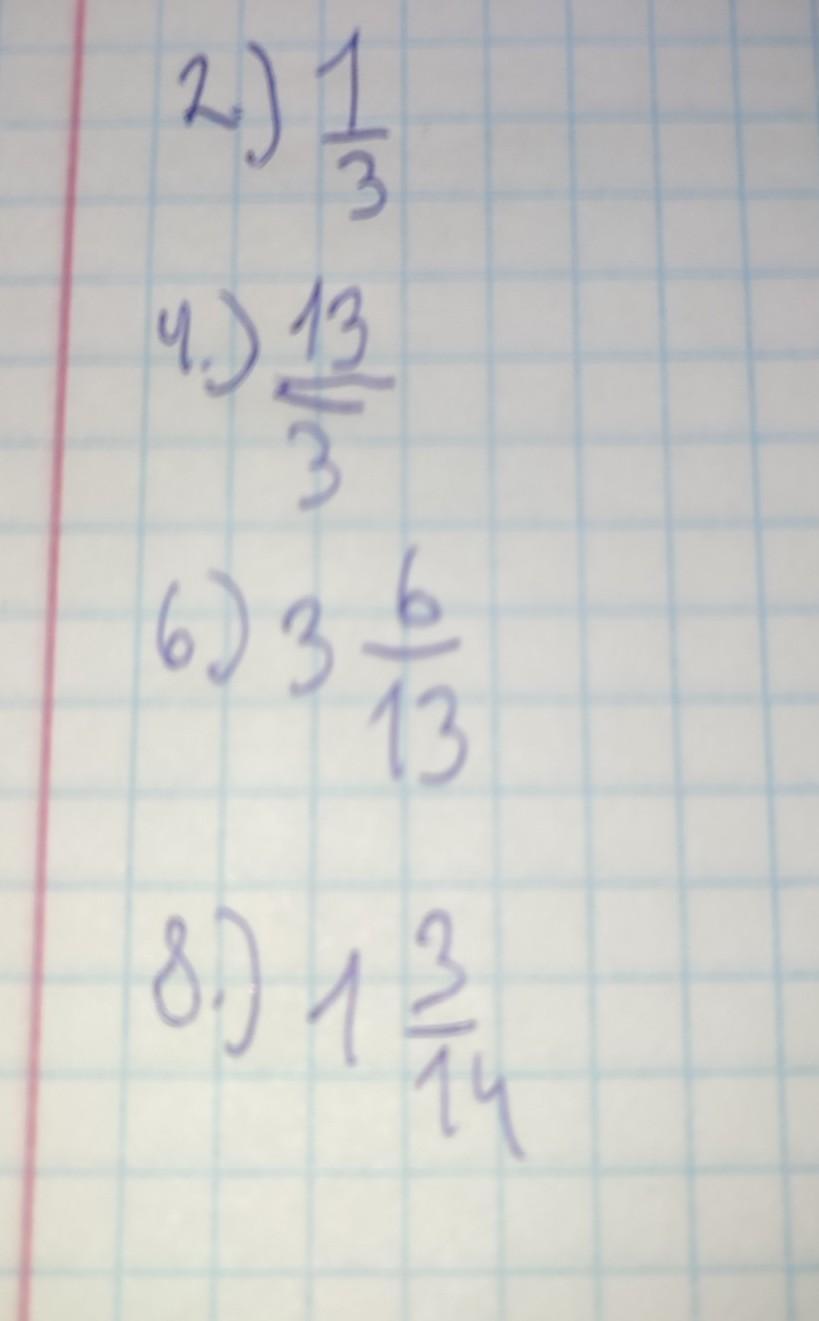 2) 1/3
4.) 13/3
6) 3 6/13
8.) 1 3/14